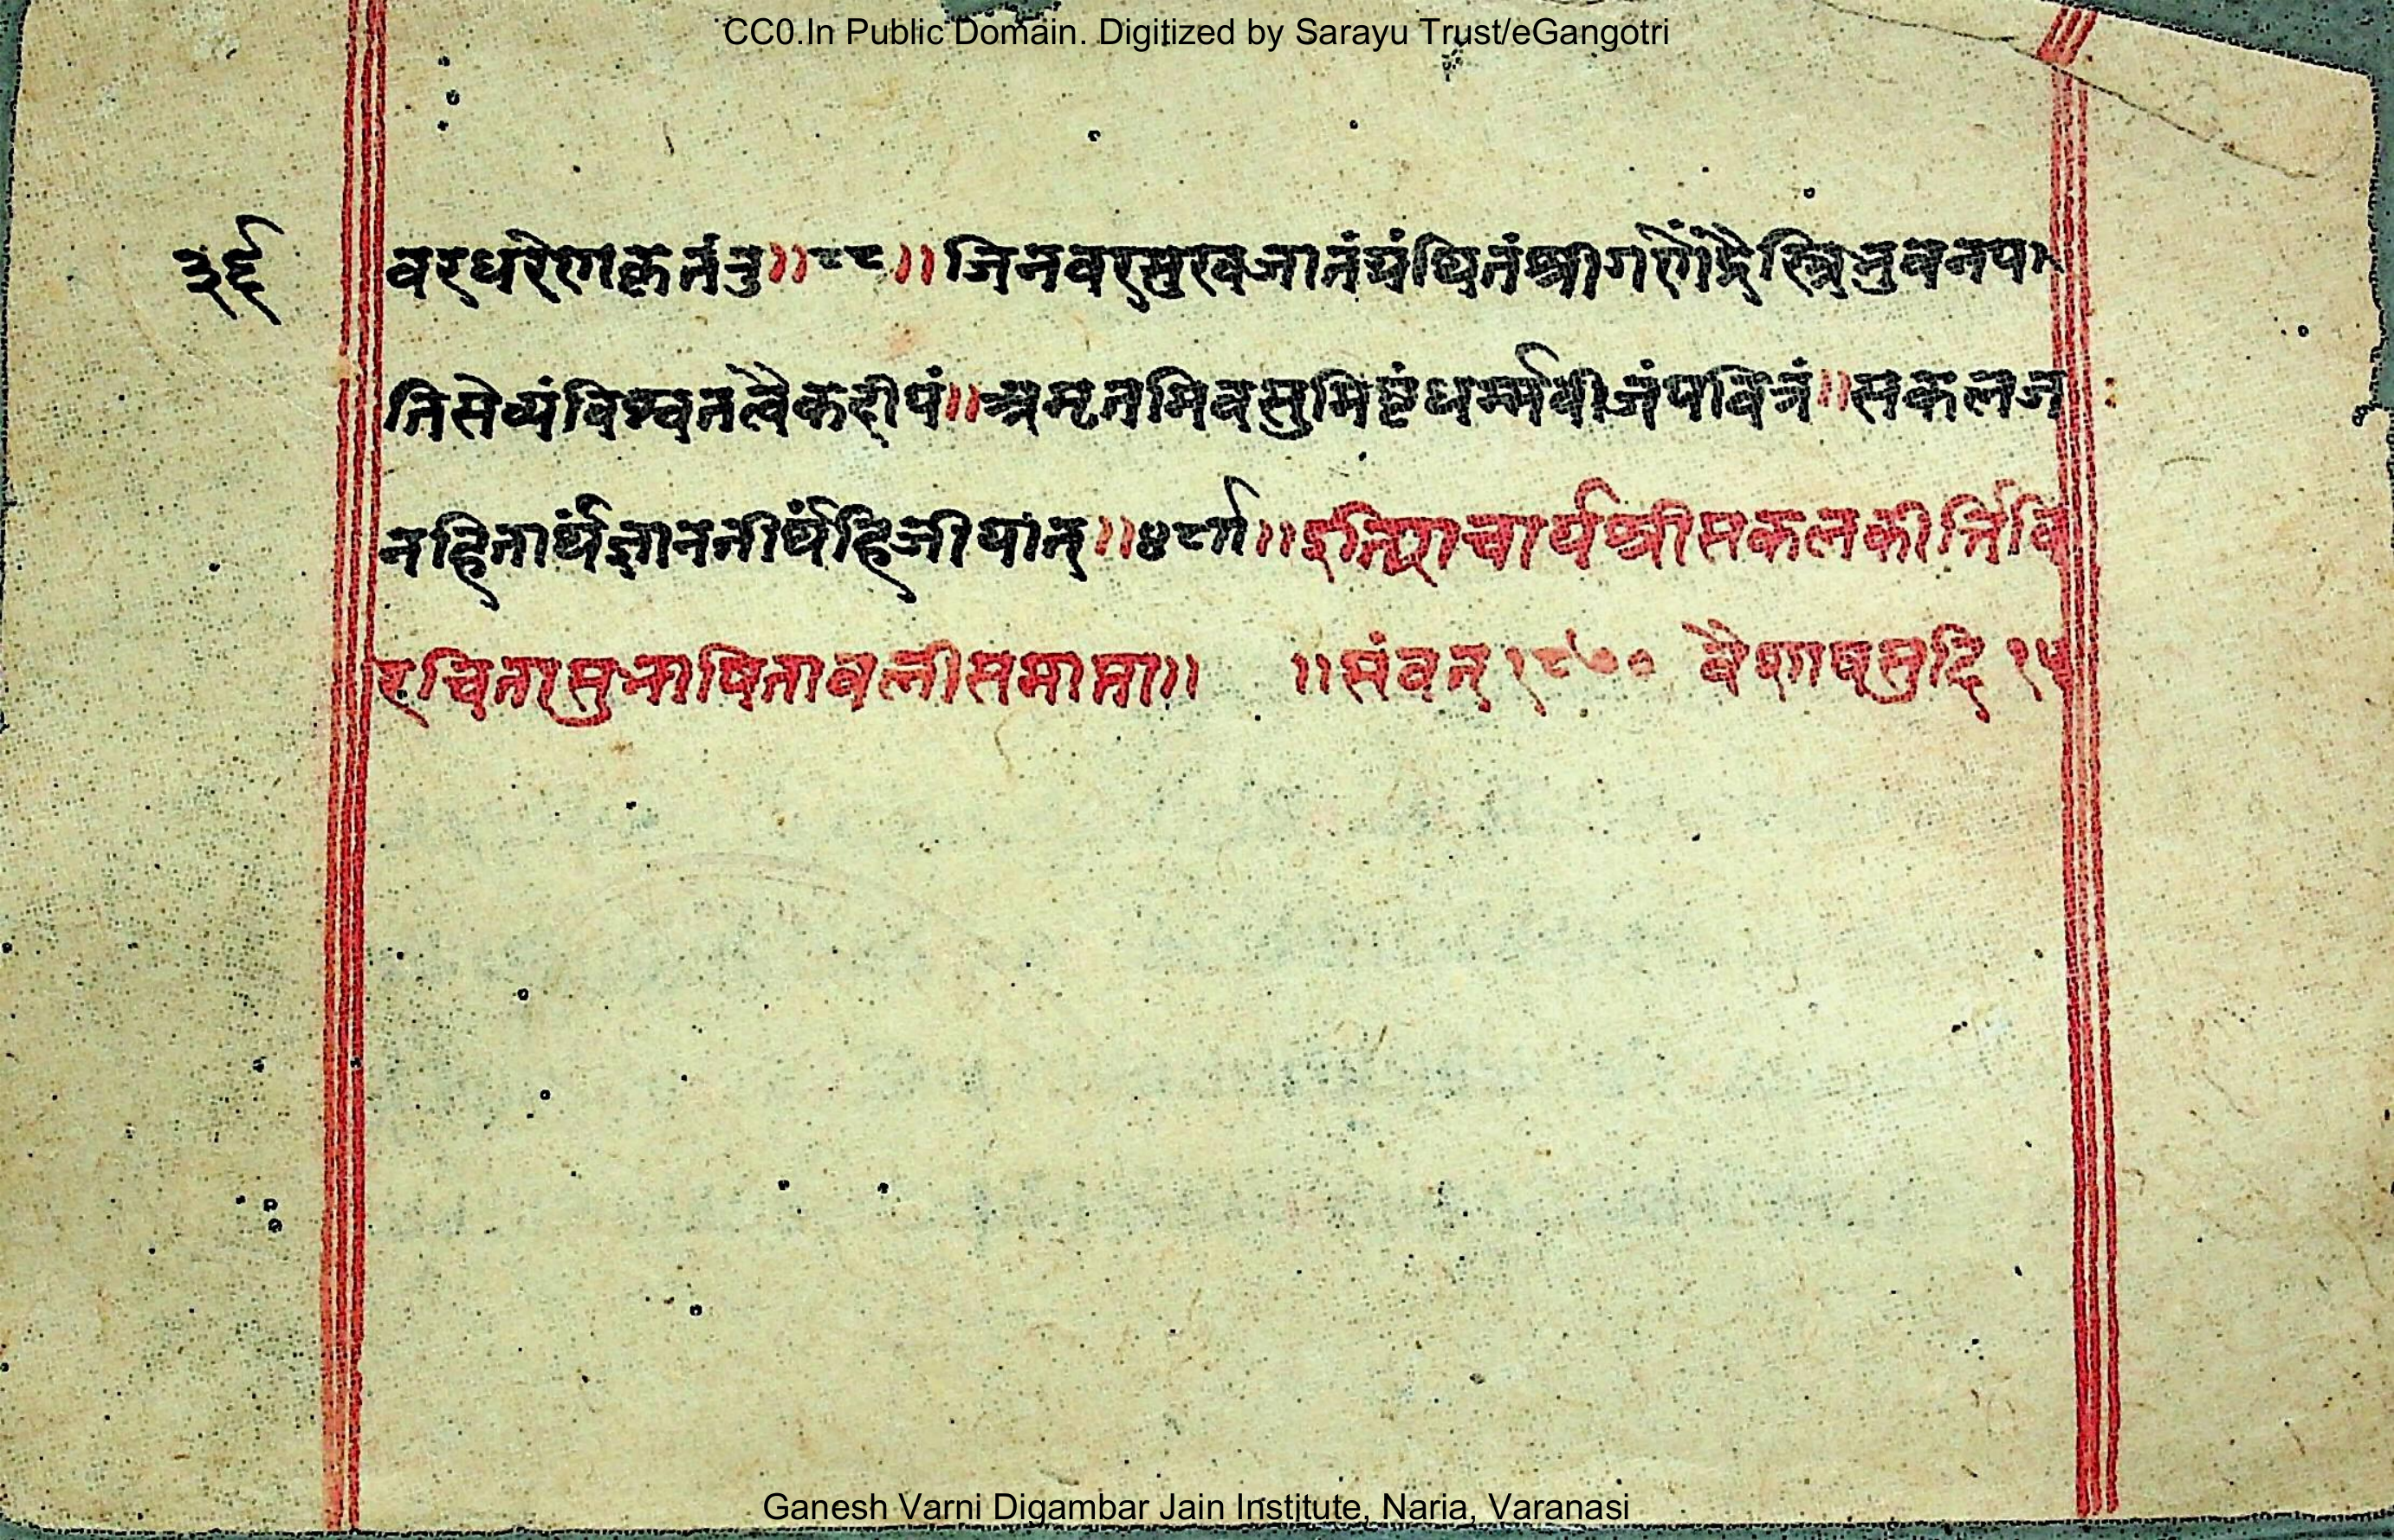 CC0.In Public Domain. Digitized by Sarayu Trust/eGangotri
३६ वरधरेणकृतंतु॥८८॥जिनवरमुखजातंग्रंथितंश्रीगणेंद्रैस्त्रिभुवनपा
तिसेव्यंविश्वतत्वैकदीपं॥अमृतमिवसुमिष्टंधर्म्मबीजंपवित्रं॥सकलज
नहितार्थंज्ञानतीर्थंहिजीयात्॥ इत्याचार्यश्रीसकलकीर्त्तिवि
रचितासुभाषितावलीसमाप्ता॥ ॥संवत् १८७० वैशाषसुदि १५
Ganesh Varni Digambar Jain Institute, Naria, Varanasi